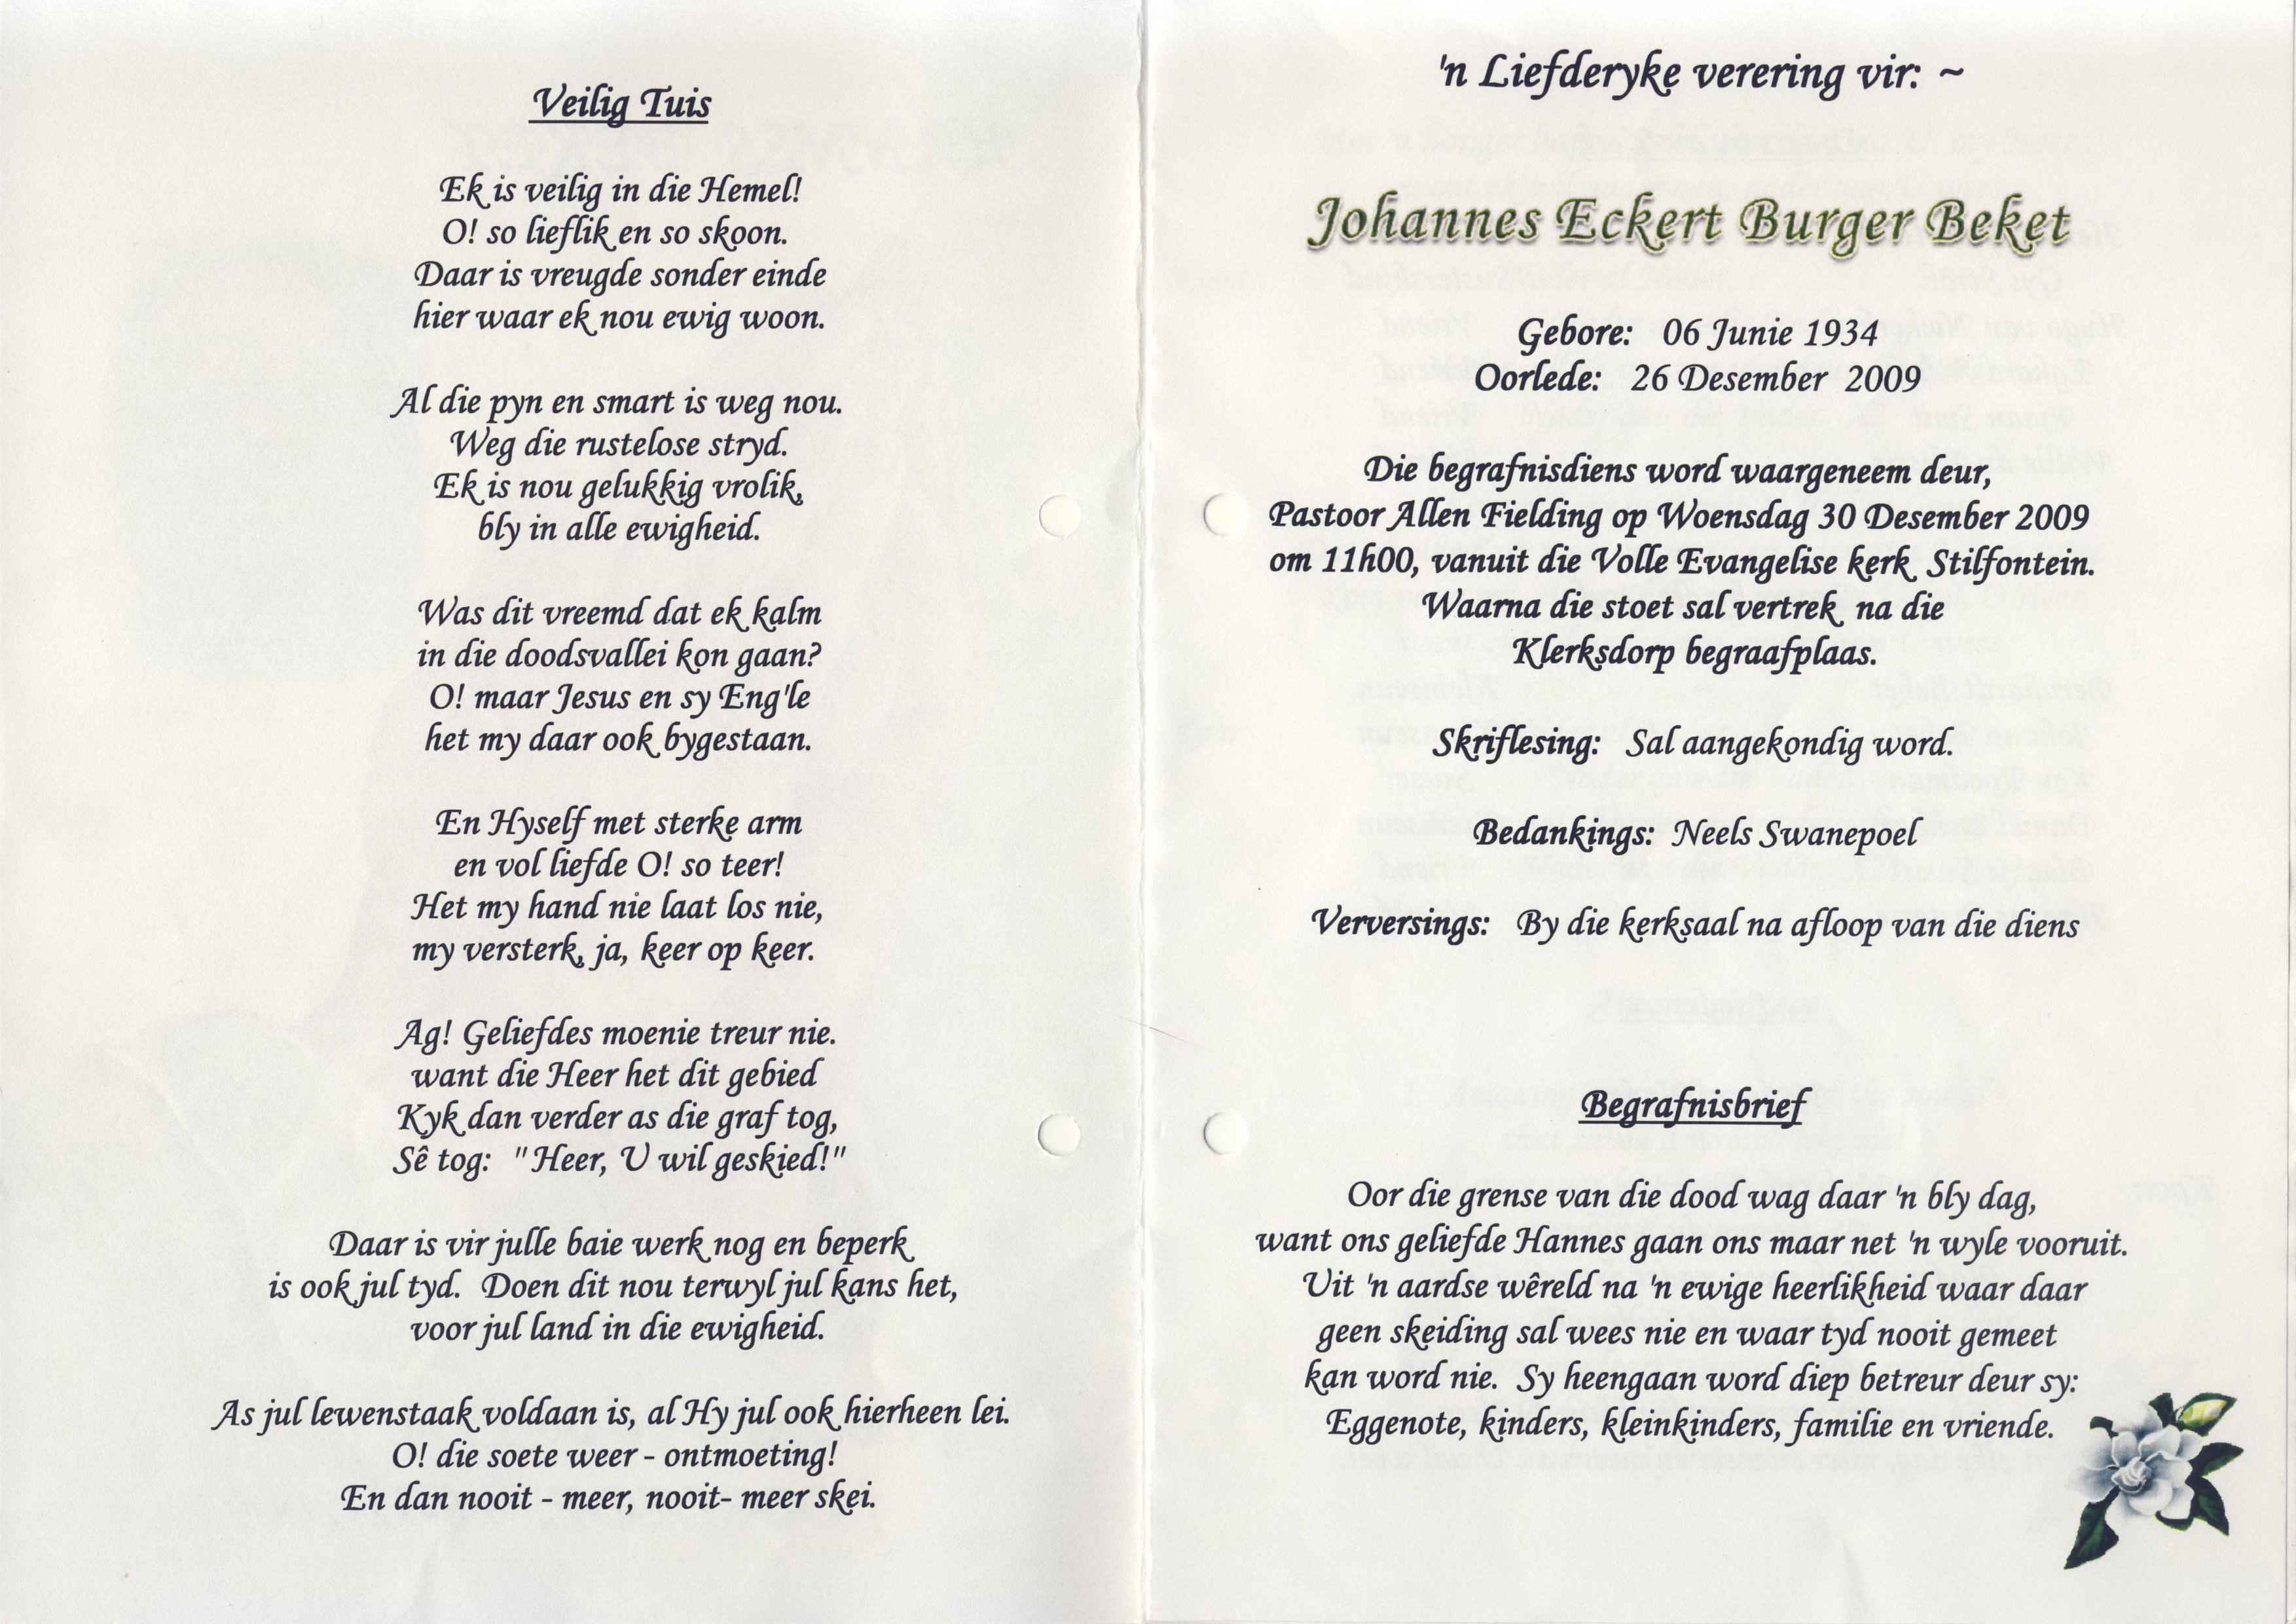 Veilig Tuis
Ek is veilig in die Hemel!
O! so lieflik en so skoon.
Daar is vreugde sonder einde
hier waar ek nou ewig woon.
Al die pyn en smart is weg nou.
Weg die rustelose stryd.
Ek is nou gelukkig vrolik,
bly in alle ewigheid.
Was dit vreemd dat ek kalm
in die doodsvallei kon gaan?
O! maar Jesus en sy Eng'le
het my daar ook bygestaan.
En Hyself met sterke arm
en vol liefde O! so teer!
Het my hand nie laat los nie,
my versterk, ja, keer op keer.
Ag! Geliefdes moenie treur nie.
want die Heer het dit gebied
Kyk dan verder as die graf tog,
Sê tog: "Heer, U wil geskied!"
Daar is vir julle baie werk nog en beperk
is ook jul tyd. Doen dit nou terwyl jul kans het,
voor jul land in die ewigheid.
As jul lewenstaak voldaan is, al Hy jul ook hierheen lei.
O! die soete weer - ontmoeting!
En dan nooit - meer, nooit- meer skei.
'n Liefderyke verering vir: ~
Johannes Eckert Burger Beket
Gebore: 06 Junie 1934
Oorlede: 26 Desember 2009
Die begrafnisdiens word waargeneem deur,
Pastoor Allen Fielding op Woensdag 30 Desember 2009
om 11h00, vanuit die Volle Evangelise kerk, Stilfontein.
Waarna die stoet sal vertrek, na die
Klerksdorp begraafplaas.
Skriflesing: Sal aangekondig word.
Bedankings: Neels Swanepoel
Verversings: By die kerksaal na afloop van die diens
Begrafnisbrief
Oor die grense van die dood wag daar 'n bly dag,
want ons geliefde Hannes gaan ons maar net 'n wyle vooruit.
Uit 'n aardse wêreld na 'n ewige heerlikheid waar daar
geen skeiding sal wees nie en waar tyd nooit gemeet
kan word nie. Sy heengaan word diep betreur deur sy:
Eggenote, kinders, kleinkinders, familie en vriende.